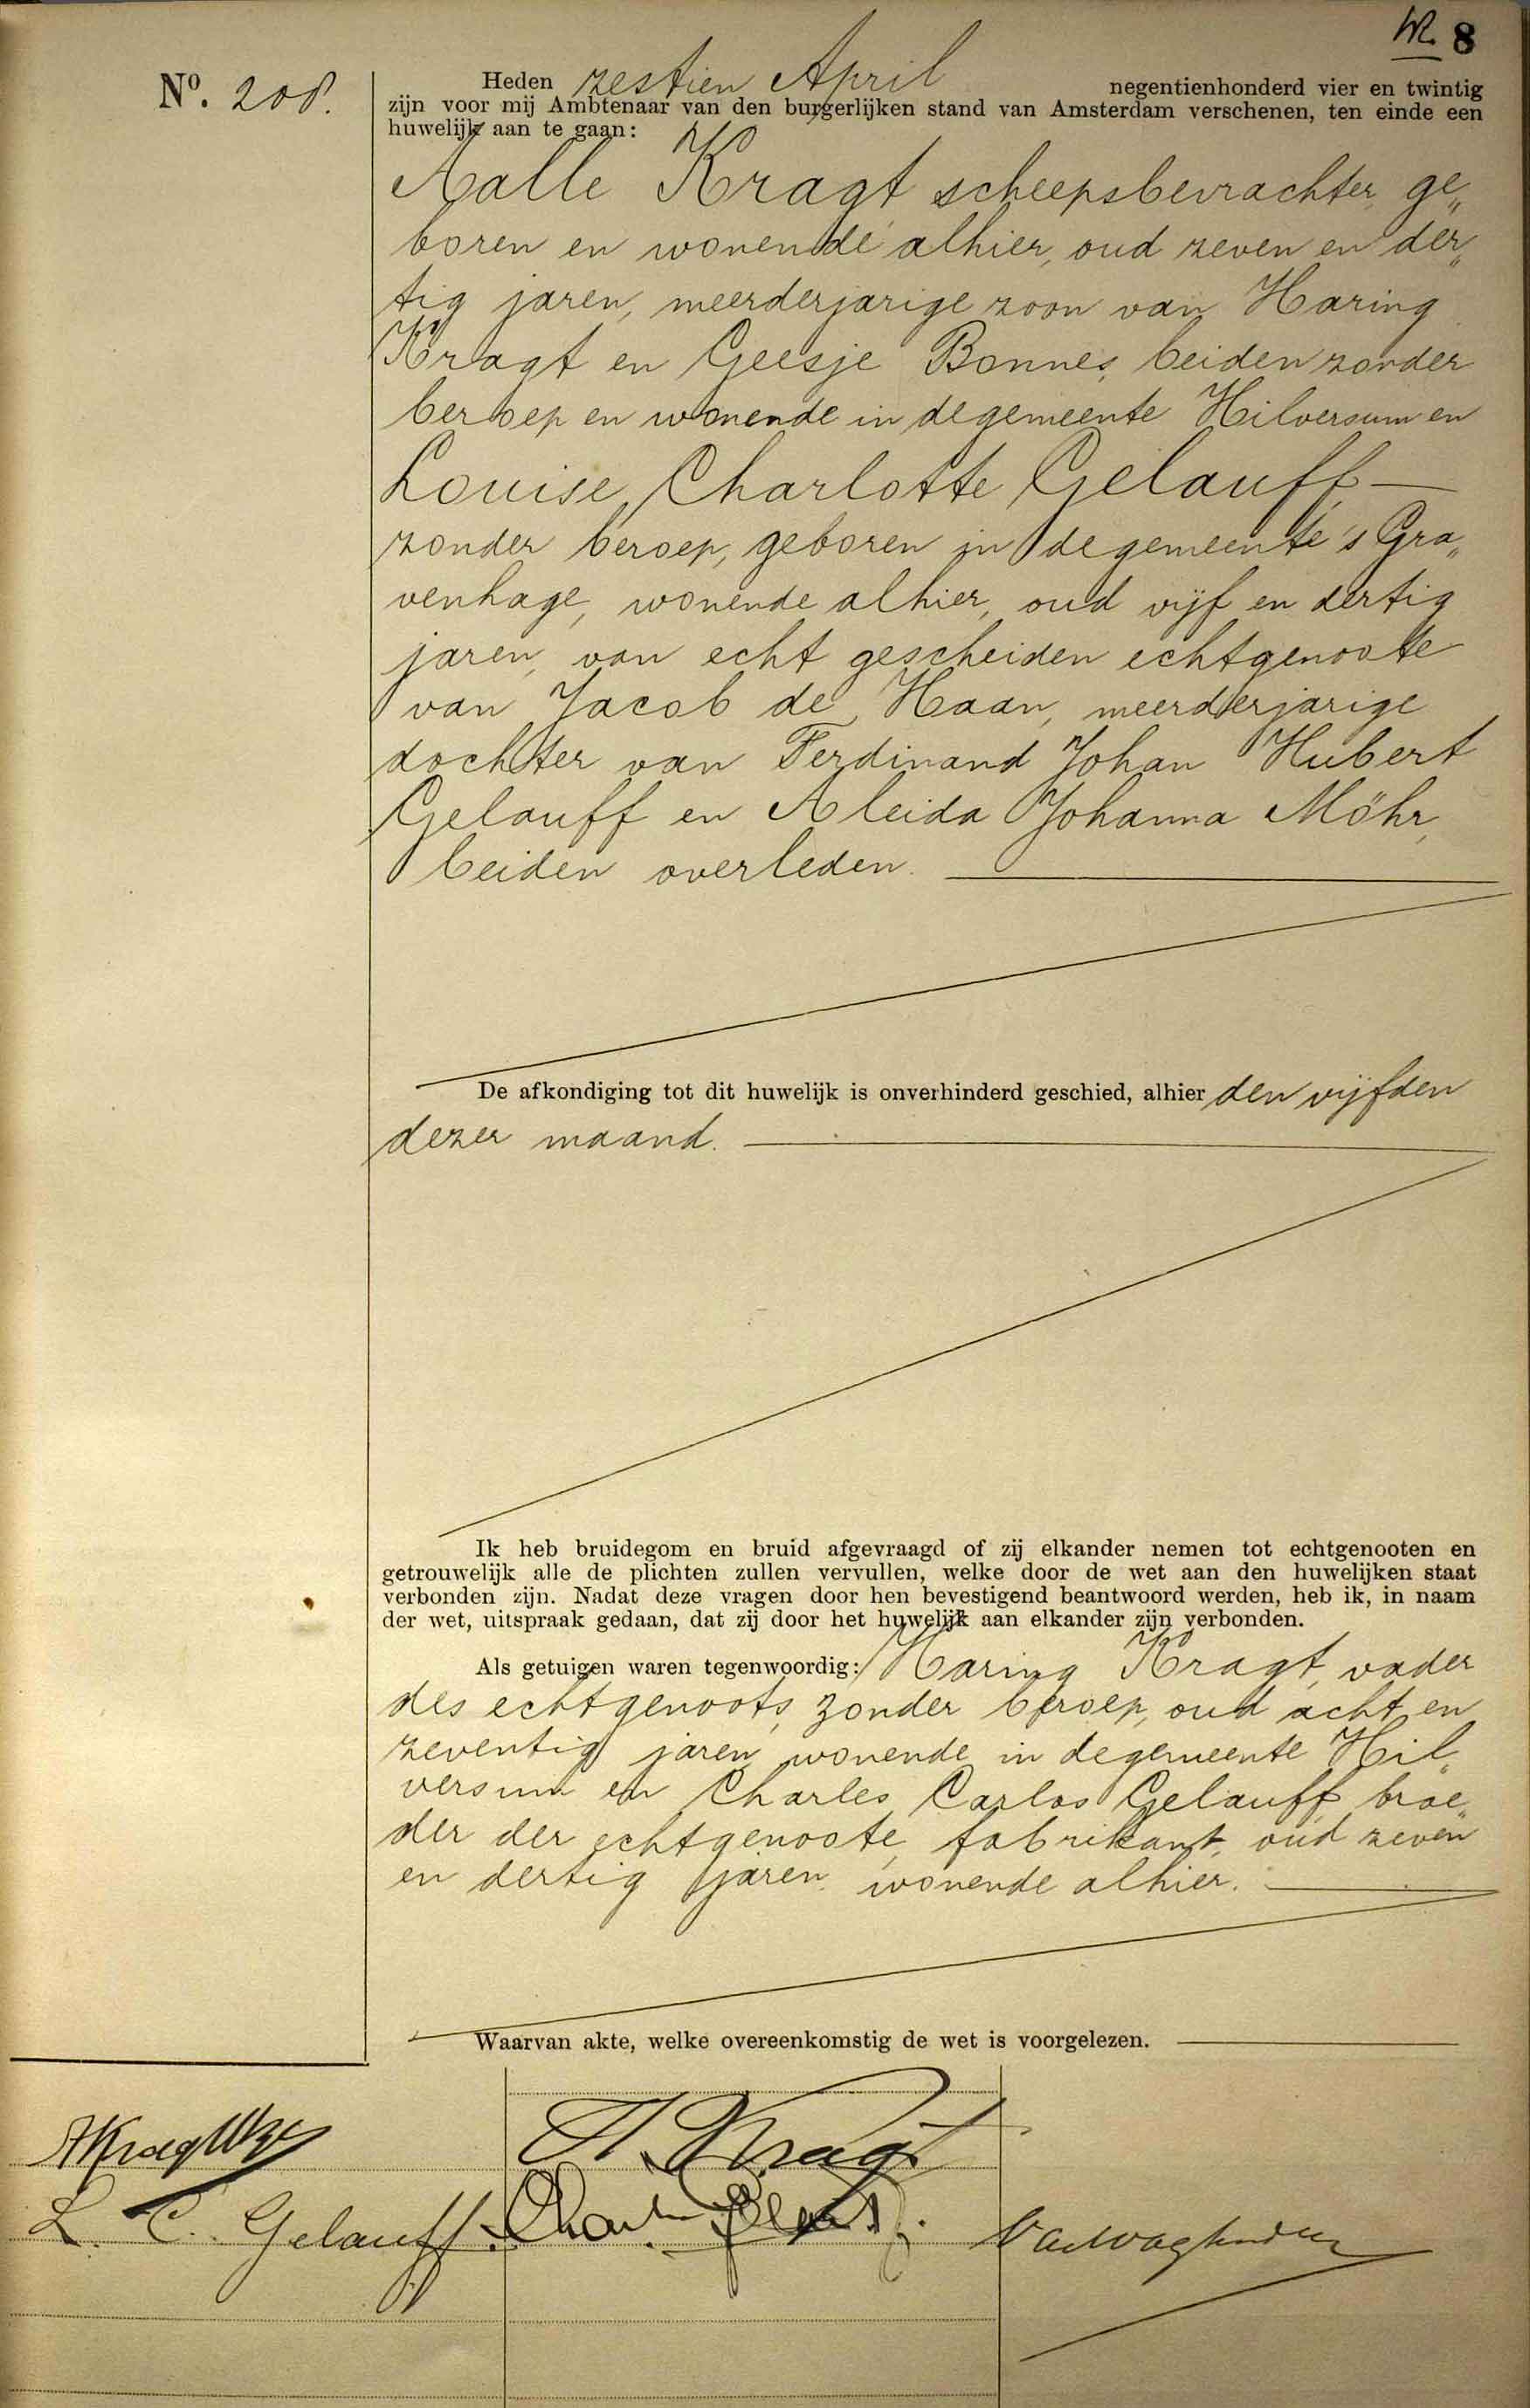 8
Nº. 208.
Heden zestien April negentienhonderd vier en twintig
zijn voor mij Ambtenaar van den burgerlijken stand van Amsterdam verschenen, ten einde een
huwelijk aan te gaan:
Aalle Kragt, scheepsbevrachter, ge„
boren en wonende alhier, oud zeven en der„
tig jaren, meerderjarige zoon van Haring
Kragt en Geesje Bonnes, beiden zonder
beroep en wonende in de gemeente Hilversum en
Louise Charlotte Gelauff —
zonder beroep, geboren in de gemeente 's Gra„
venhage, wonende alhier, oud vijf en dertig
jaren, van echt gescheiden echtgenoote
van Jacob de Haan, meerderjarige
dochter van Ferdinand Johan Hubert
Gelauff en Aleida Johanna Möhr,
beiden overleden.
De afkondiging tot dit huwelijk is onverhinderd geschied, alhier den vijfden
dezer maand.
Ik heb bruidegom en bruid afgevraagd of zij elkander nemen tot echtgenooten en
getrouwelijk alle de plichten zullen vervullen, welke door de wet aan den huwelijken staat
verbonden zijn. Nadat deze vragen door hen bevestigend beantwoord werden, heb ik, in naam
der wet, uitspraak gedaan, dat zij door het huwelijk aan elkander zijn verbonden.
Als getuigen waren tegenwoordig: Haring Kragt, vader
des echtgenoots, zonder beroep, oud acht en
zeventig jaren, wonende in de gemeente Hil„
versum en Charles Carlos Gelauff, broe„
der der echtgenoote, fabrikant, oud zeven
en dertig jaren, wonende alhier.
Waarvan akte, welke overeenkomstig de wet is voorgelezen.
AKragt Hzn
H. Kragt
L. C. Gelauff.